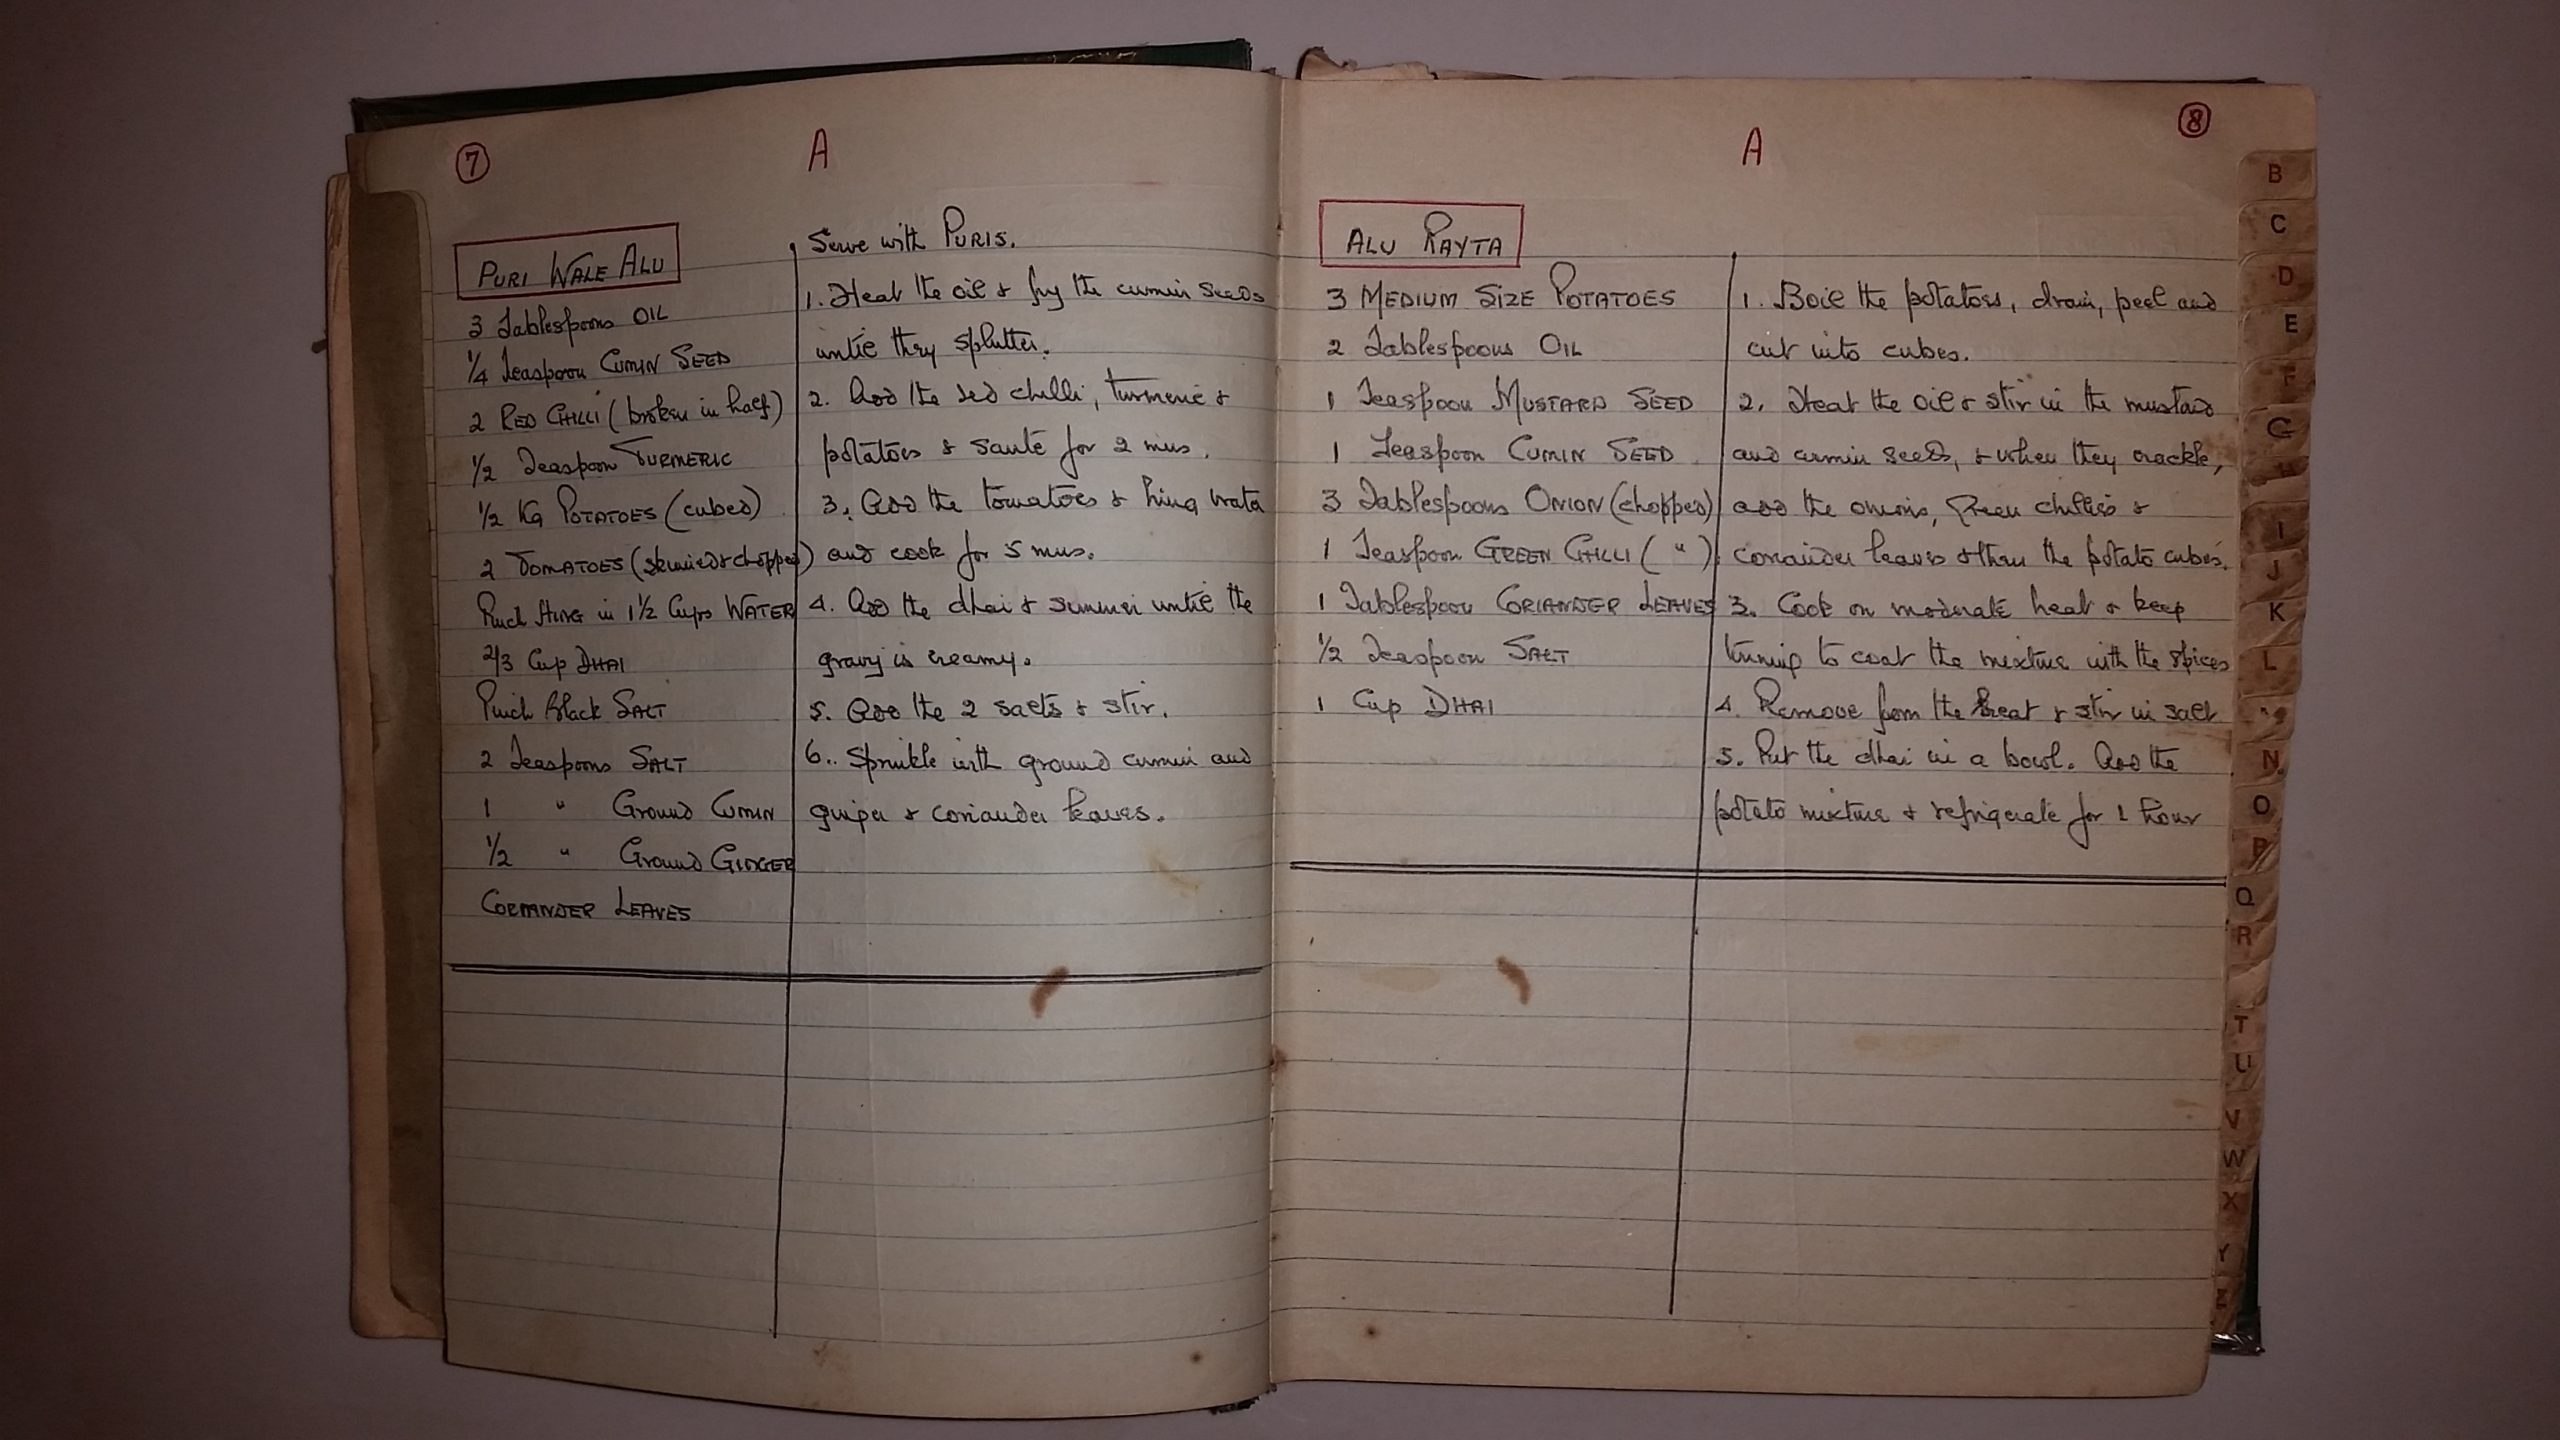 7
A
PURI WALE ALU
3 Tablespoons OIL
1/4 Teaspoon CUMIN SEED
2 RED CHILLI (broken in half)
1/2 Teaspoon TURMERIC
1/2 KG POTATOES (cubed)
2 TOMATOES (skinned & chopped)
Pinch HING in 1 1/2 Cups WATER
2/3 Cup DHAI
Pinch Black SALT
2 Teaspoons SALT
1 " Ground CUMIN
1/2 " Ground GINGER
CORIANDER LEAVES
Serve with PURIS.
1. Heat the oil & fry the cumin seeds
until they splutter.
2. Add the red chilli, turmeric &
potatoes & sauté for 2 mns.
3. Add the tomatoes & hing water
and cook for 5 mns.
4. Add the dhai & simmer until the
gravy is creamy.
5. Add the 2 salts & stir.
6.. Sprinkle with ground cumin and
ginger & coriander leaves.
8
A
ALU RAYTA
3 MEDIUM SIZE POTATOES
2 Tablespoons OIL
1 Teaspoon MUSTARD SEED
1 Teaspoon CUMIN SEED
3 Tablespoons ONION (chopped)
1 Teaspoon GREEN CHILLI ( " )
1 Tablespoon CORIANDER LEAVES
1/2 Teaspoon SALT
1 Cup DHAI
1. Boil the potatoes, drain, peel and
cut into cubes.
2. Heat the oil & stir in the mustard
and cumin seeds, & when they crackle,
add the onions, green chillies &
coriander leaves & then the potato cubes.
3. Cook on moderate heat & keep
turning to coat the mixture with the spices
4. Remove from the heat & stir in salt
5. Put the dhai in a bowl. Add the
potato mixture & refrigerate for 1 hour
B
C
D
E
F
G
H
I
J
K
L
N
O
P
Q
R
T
U
V
W
X
Y
Z